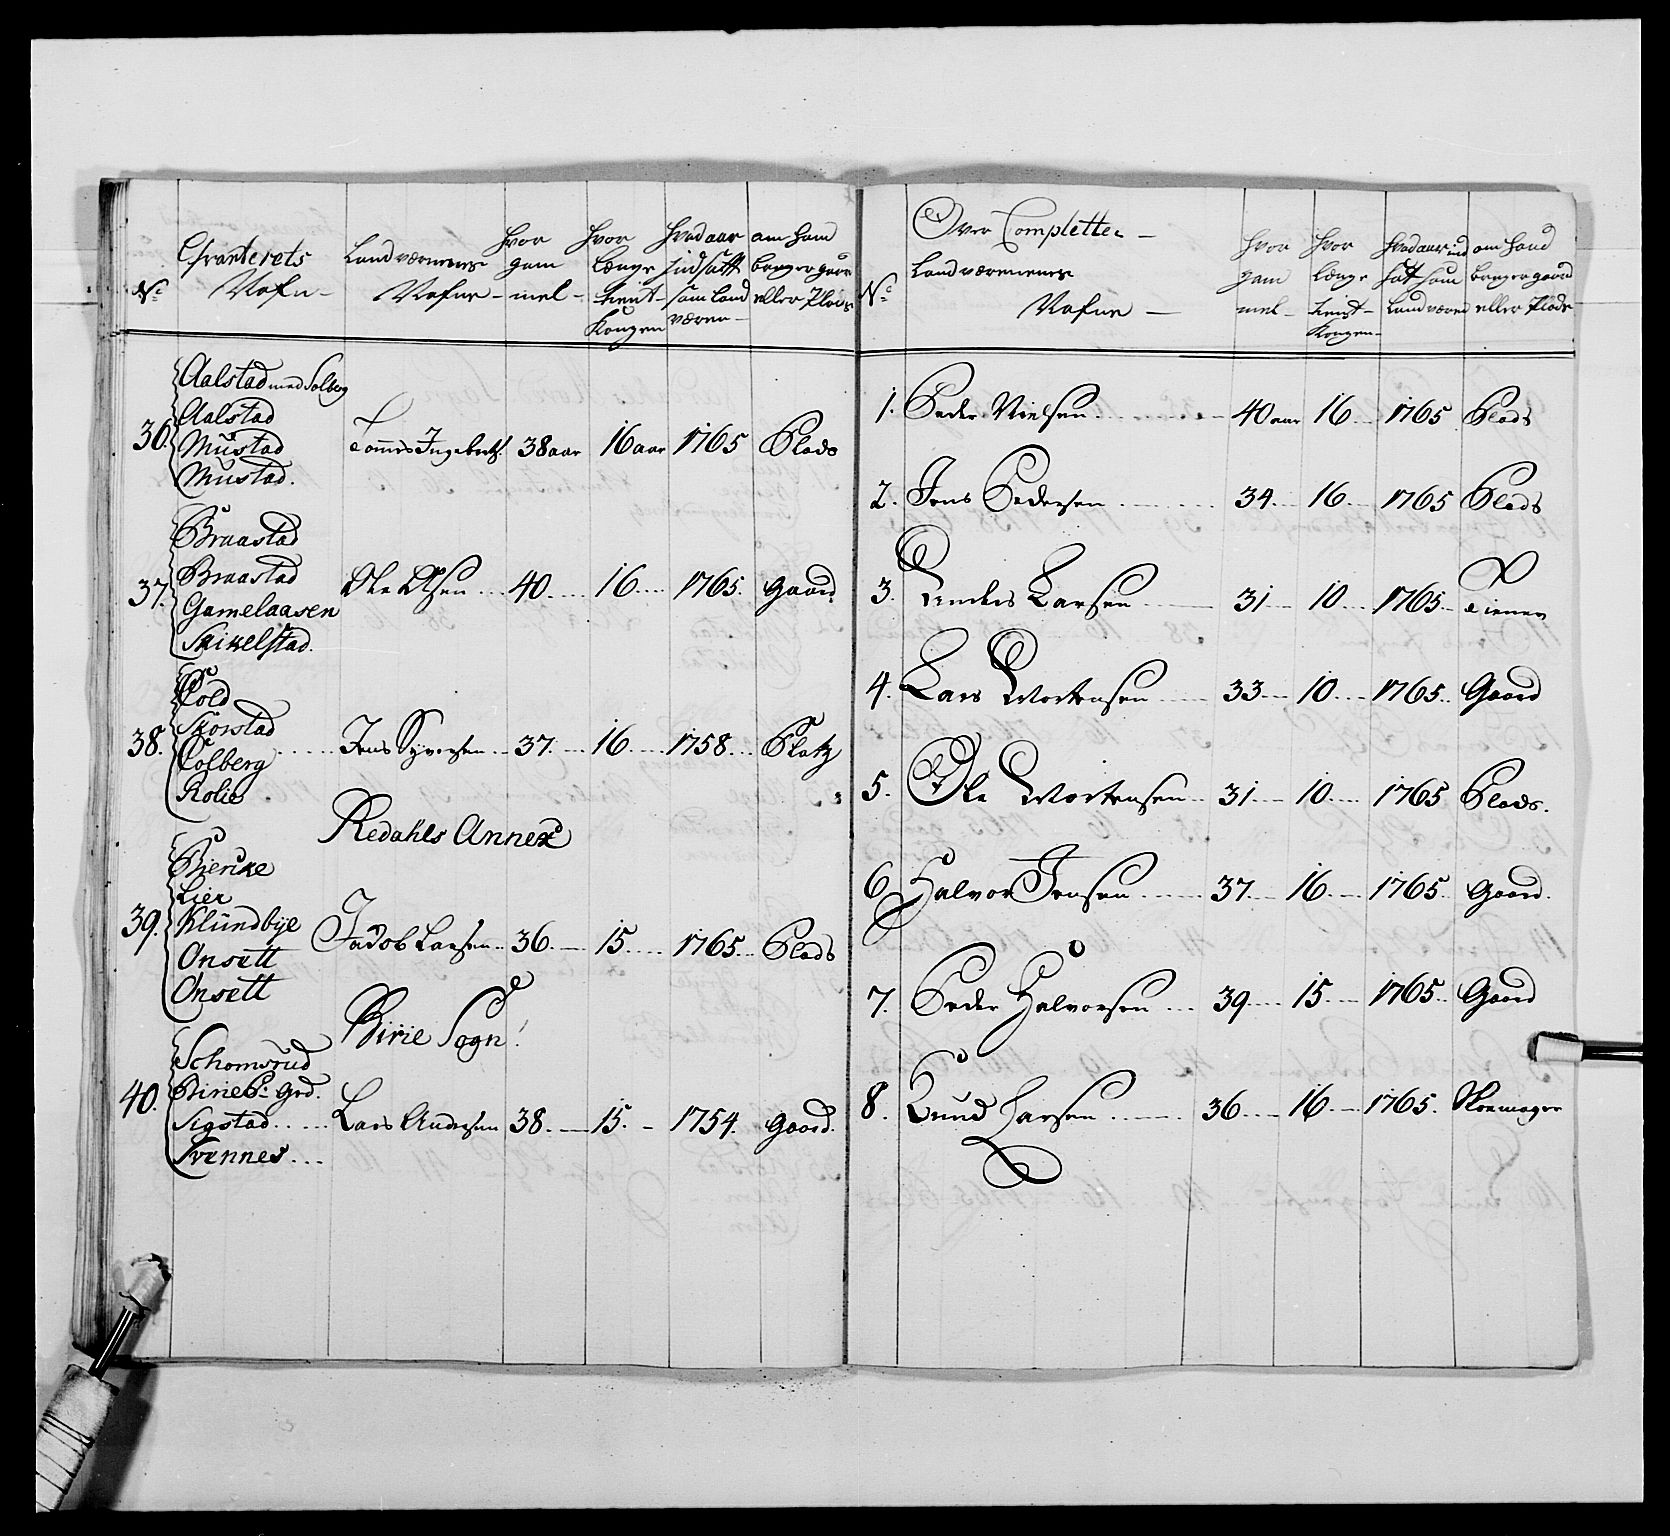 No Qvarterets Nafn Landværnenes Nafne hvor gammel hvor længe tient Kongen hvad aar indsatt som land væren om hand bruger gaard eller Plads
36. Aalstad med Solberg
Aalstad
Mustad
Mustad.
Tomes Ingebrets. 38 aar 16 aar 1765 Plads
37. Braastad
Braastad
Gamelaasen
Skikelstad.
Ole Olsen 40 16 1765. gaard
38. Kold
Skorstad
Colberg
Rolie
Jens Syversen 37. 16 1758 Platz
Redahls Annex
39. Biercke
Lier
Klundbye
Onsett
Onsett
Jacob Larsen 36. 15 1765 Plads
Birie Sogn
40. Schomsrud
Birie P: grd.
Sigstad
Svennes
Lars Andersen 38. 15. 1754. gaard.
No Over Complette Landværenenes Nafne hvor gammel hvor længe tient Kongen hvad aar ind sat som Landværen om hand bruger gaard eller Plads
1. Peder Nielsen 40 aar 16 1765 Plads
2. Jens Pedersen 34. 16 1765 Plads
3. Anders Larsen 31 10 1765 Tiener
4. Lars Mortensen 33 10 1765 Gaard
5. Ole Mortensen 31 10 1765 Plads.
6 Halvor Jensen 37. 16 1765. Gaard.
7. Peder Halvorsen 39 15 1765 Gaard
8. Knud Larsen 36 16 1765. Skomager